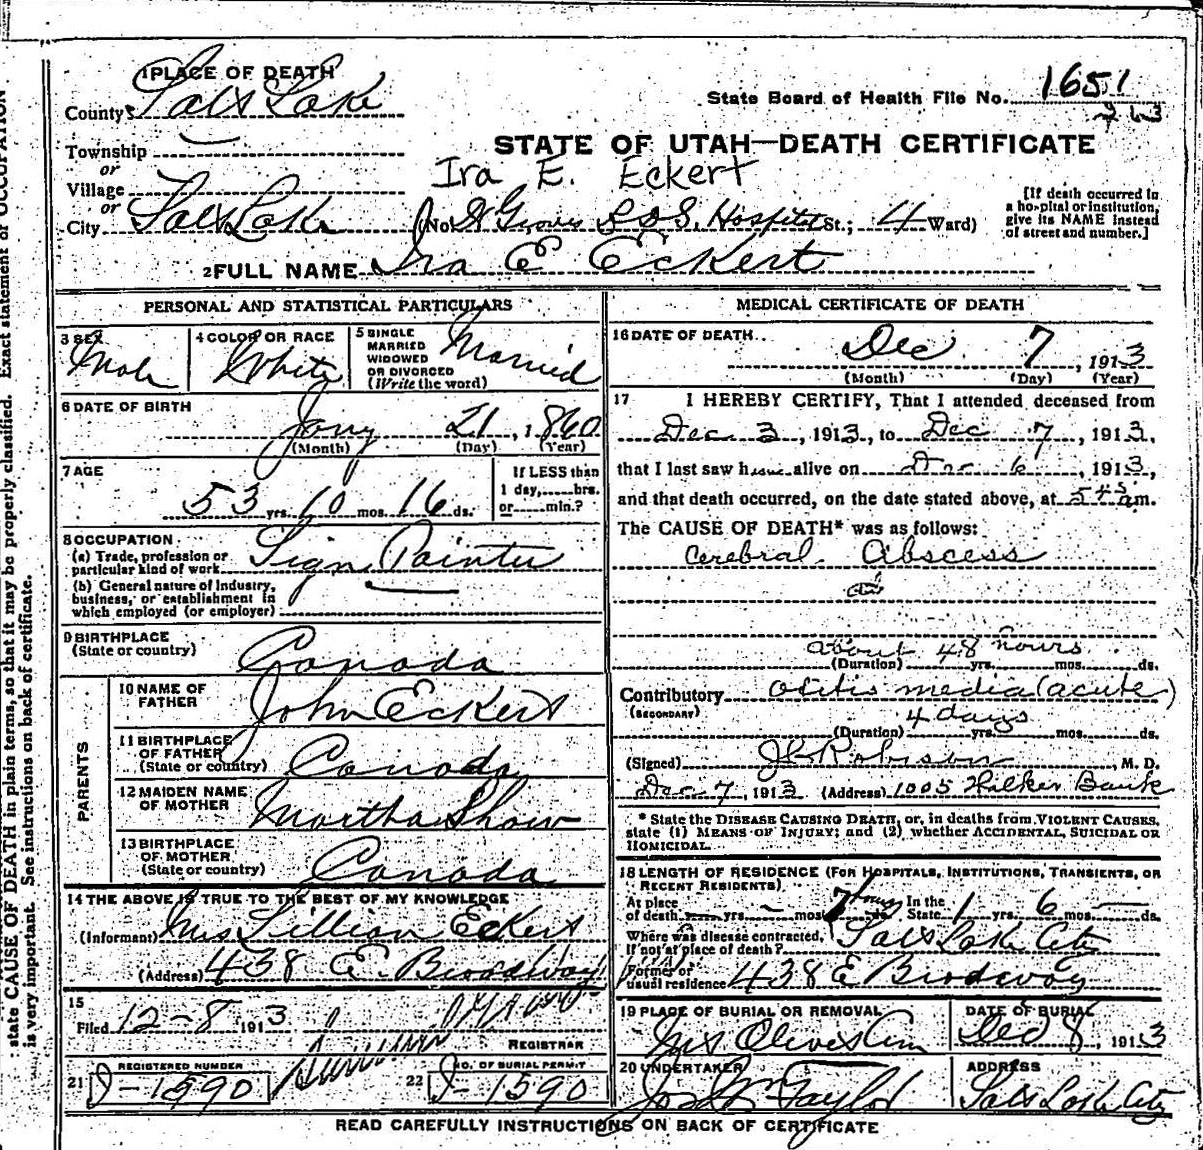 state CAUSE OF DEATH in plain terms, so that it may be properly classified. Exact statement of OCCUPATION
is very important. See instructions on back of certificate.
1 PLACE OF DEATH
County Salt Lake
Township
or
Village
or
City Salt Lake
State Board of Health File No. 1651
STATE OF UTAH—DEATH CERTIFICATE
Ira E. Eckert
(No. L D S. Hospital St.; 4 Ward)
[If death occurred in
a hospital or institution,
give its NAME instead
of street and number.]
2 FULL NAME Ira E Eckert
PERSONAL AND STATISTICAL PARTICULARS
3 SEX Male
4 COLOR OR RACE White
5 SINGLE
MARRIED
WIDOWED
OR DIVORCED
(Write the word) Married
6 DATE OF BIRTH
Jany 21, 1860
(Month) (Day) (Year)
7 AGE
53 yrs. 10 mos. 16 ds.
If LESS than
1 day, hrs.
or min.?
8 OCCUPATION
(a) Trade, profession or
particular kind of work Sign Painter
(b) General nature of industry,
business, or establishment in
which employed (or employer)
9 BIRTHPLACE
(State or country) Canada
PARENTS
10 NAME OF
FATHER John Eckert
11 BIRTHPLACE
OF FATHER
(State or country) Canada
12 MAIDEN NAME
OF MOTHER Martha Shaw
13 BIRTHPLACE
OF MOTHER
(State or country) Canada
14 THE ABOVE IS TRUE TO THE BEST OF MY KNOWLEDGE
(Informant) Mrs Lillian Eckert
(Address) 438 E. Broadway
15
Filed 12-8 1913
REGISTRAR
REGISTERED NUMBER
21 J-1590
NO. OF BURIAL PERMIT
22 J-1590
MEDICAL CERTIFICATE OF DEATH
16 DATE OF DEATH
Dec 7, 1913
(Month) (Day) (Year)
17 I HEREBY CERTIFY, That I attended deceased from
Dec 3, 1913, to Dec 7, 1913,
that I last saw him alive on Dec 6, 1913,
and that death occurred, on the date stated above, at 5 45 am.
The CAUSE OF DEATH* was as follows:
Cerebral Abscess
about 48 hours
(Duration) yrs. mos. ds.
Contributory otitis media (acute)
(SECONDARY)
4 days
(Duration) yrs. mos. ds.
(Signed) M. D.
Dec 7, 1913 (Address) 1005 Walker Bank
* State the DISEASE CAUSING DEATH, or, in deaths from VIOLENT CAUSES,
state (1) MEANS OF INJURY; and (2) whether ACCIDENTAL, SUICIDAL OR
HOMICIDAL.
18 LENGTH OF RESIDENCE (FOR HOSPITALS, INSTITUTIONS, TRANSIENTS, OR
RECENT RESIDENTS)
At place
of death yrs. mos. 7 ds. In the
State 1 yrs. 6 mos. ds.
Where was disease contracted,
If not at place of death? Salt Lake City
Former or
usual residence 438 E Brodway
19 PLACE OF BURIAL OR REMOVAL
Mt Olivet Cem
DATE OF BURIAL
Dec 8, 1913
20 UNDERTAKER
Jos Wm Taylor
ADDRESS
Salt Lake City
READ CAREFULLY INSTRUCTIONS ON BACK OF CERTIFICATE